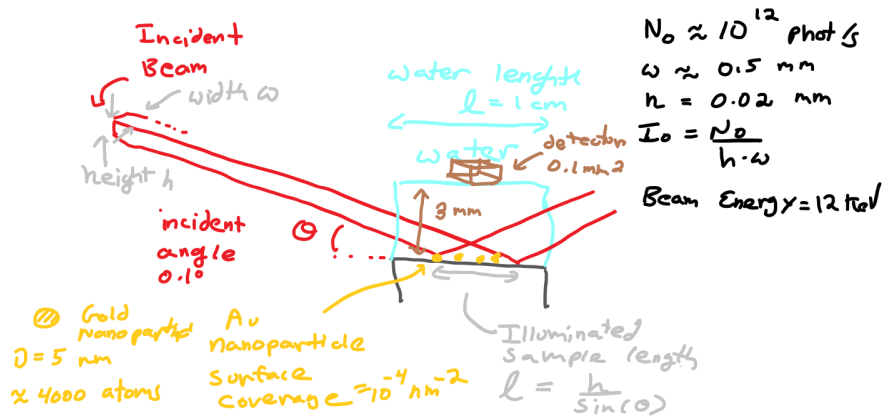 Incident
Beam
width ω
height h
incident
angle
0.1°
Θ
water lenght
l = 1 cm
water
detector
0.1 mm2
3 mm
N₀ ≈ 10¹² phot/s
ω ≈ 0.5 mm
h = 0.02 mm
I₀ = N₀ / h·ω
Beam Energy = 12 keV
Gold
nanoparticl
D = 5 nm
≈ 4000 atoms
Au
nanoparticle
surface
coverage = 10⁻⁴ nm⁻²
Illuminated
sample length
l = h / sin(θ)